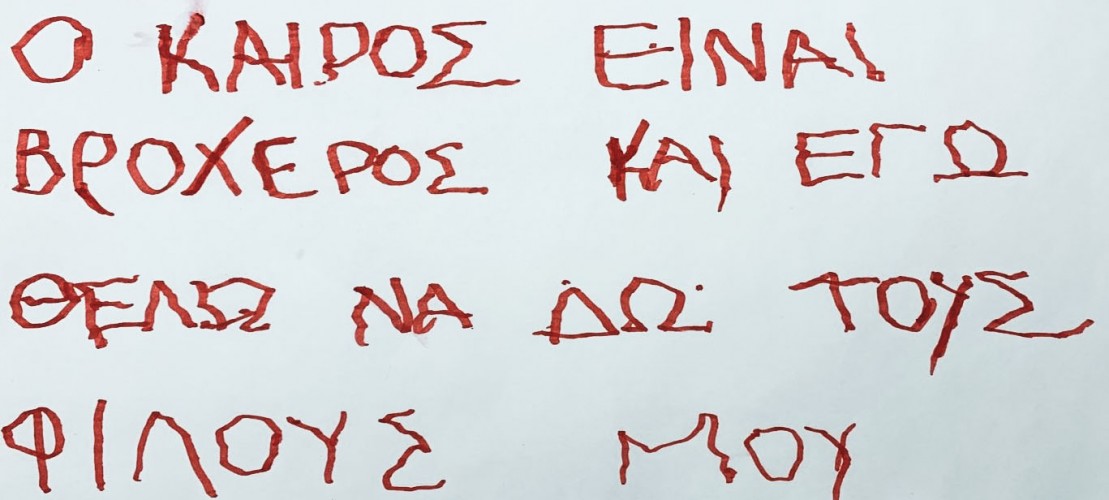 Ο ΚΑΙΡΟΣ ΕΙΝΑΙ
ΒΡΟΧΕΡΟΣ ΚΑΙ ΕΓΩ
ΘΕΛΩ ΝΑ ΔΩ ΤΟΥΣ
ΦΙΛΟΥΣ ΜΟΥ